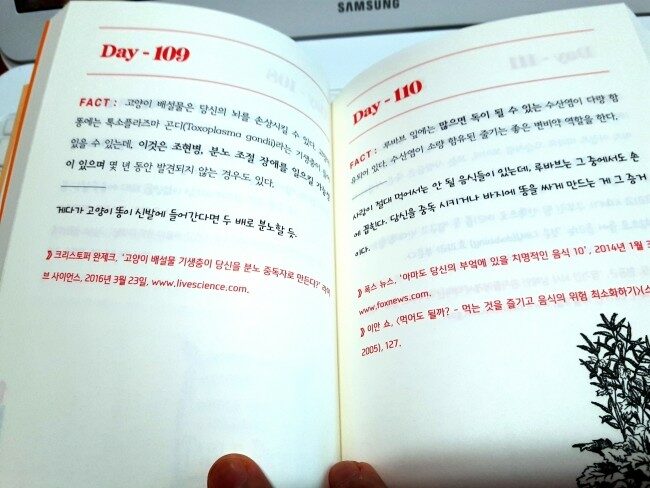 SAMSUNG
Day - 109
FACT : 고양이 배설물은 당신의 뇌를 손상시킬 수 있다. 고양이
똥에는 톡소플라즈마 곤디(Toxoplasma gondii)라는 기생충이 들어
있을 수 있는데, 이것은 조현병, 분노 조절 장애를 일으킬 가능성
이 있으며 몇 년 동안 발견되지 않는 경우도 있다.
게다가 고양이 똥이 신발에 들어간다면 두 배로 분노할 듯.
》 크리스토퍼 완제크, '고양이 배설물 기생충이 당신을 분노 중독자로 만든다?' 라이
브 사이언스, 2016년 3월 23일, www.livescience.com.
Day - 110
FACT : 루바브 잎에는 많으면 독이 될 수 있는 수산염이 다량 함
유되어 있다. 수산염이 소량 함유된 줄기는 좋은 변비약 역할을 한다.
사람이 절대 먹어서는 안 될 음식들이 있는데, 루바브는 그 중에서도 손
에 꼽힌다. 당신을 중독 시키거나 바지에 똥을 싸게 만드는 게 그 증거
이다.
》 폭스 뉴스, '아마도 당신의 부엌에 있을 치명적인 음식 10', 2014년 1월
www.foxnews.com.
》 이안 쇼, 〈먹어도 될까? - 먹는 것을 즐기고 음식의 위험 최소화하기〉(
2005), 127.